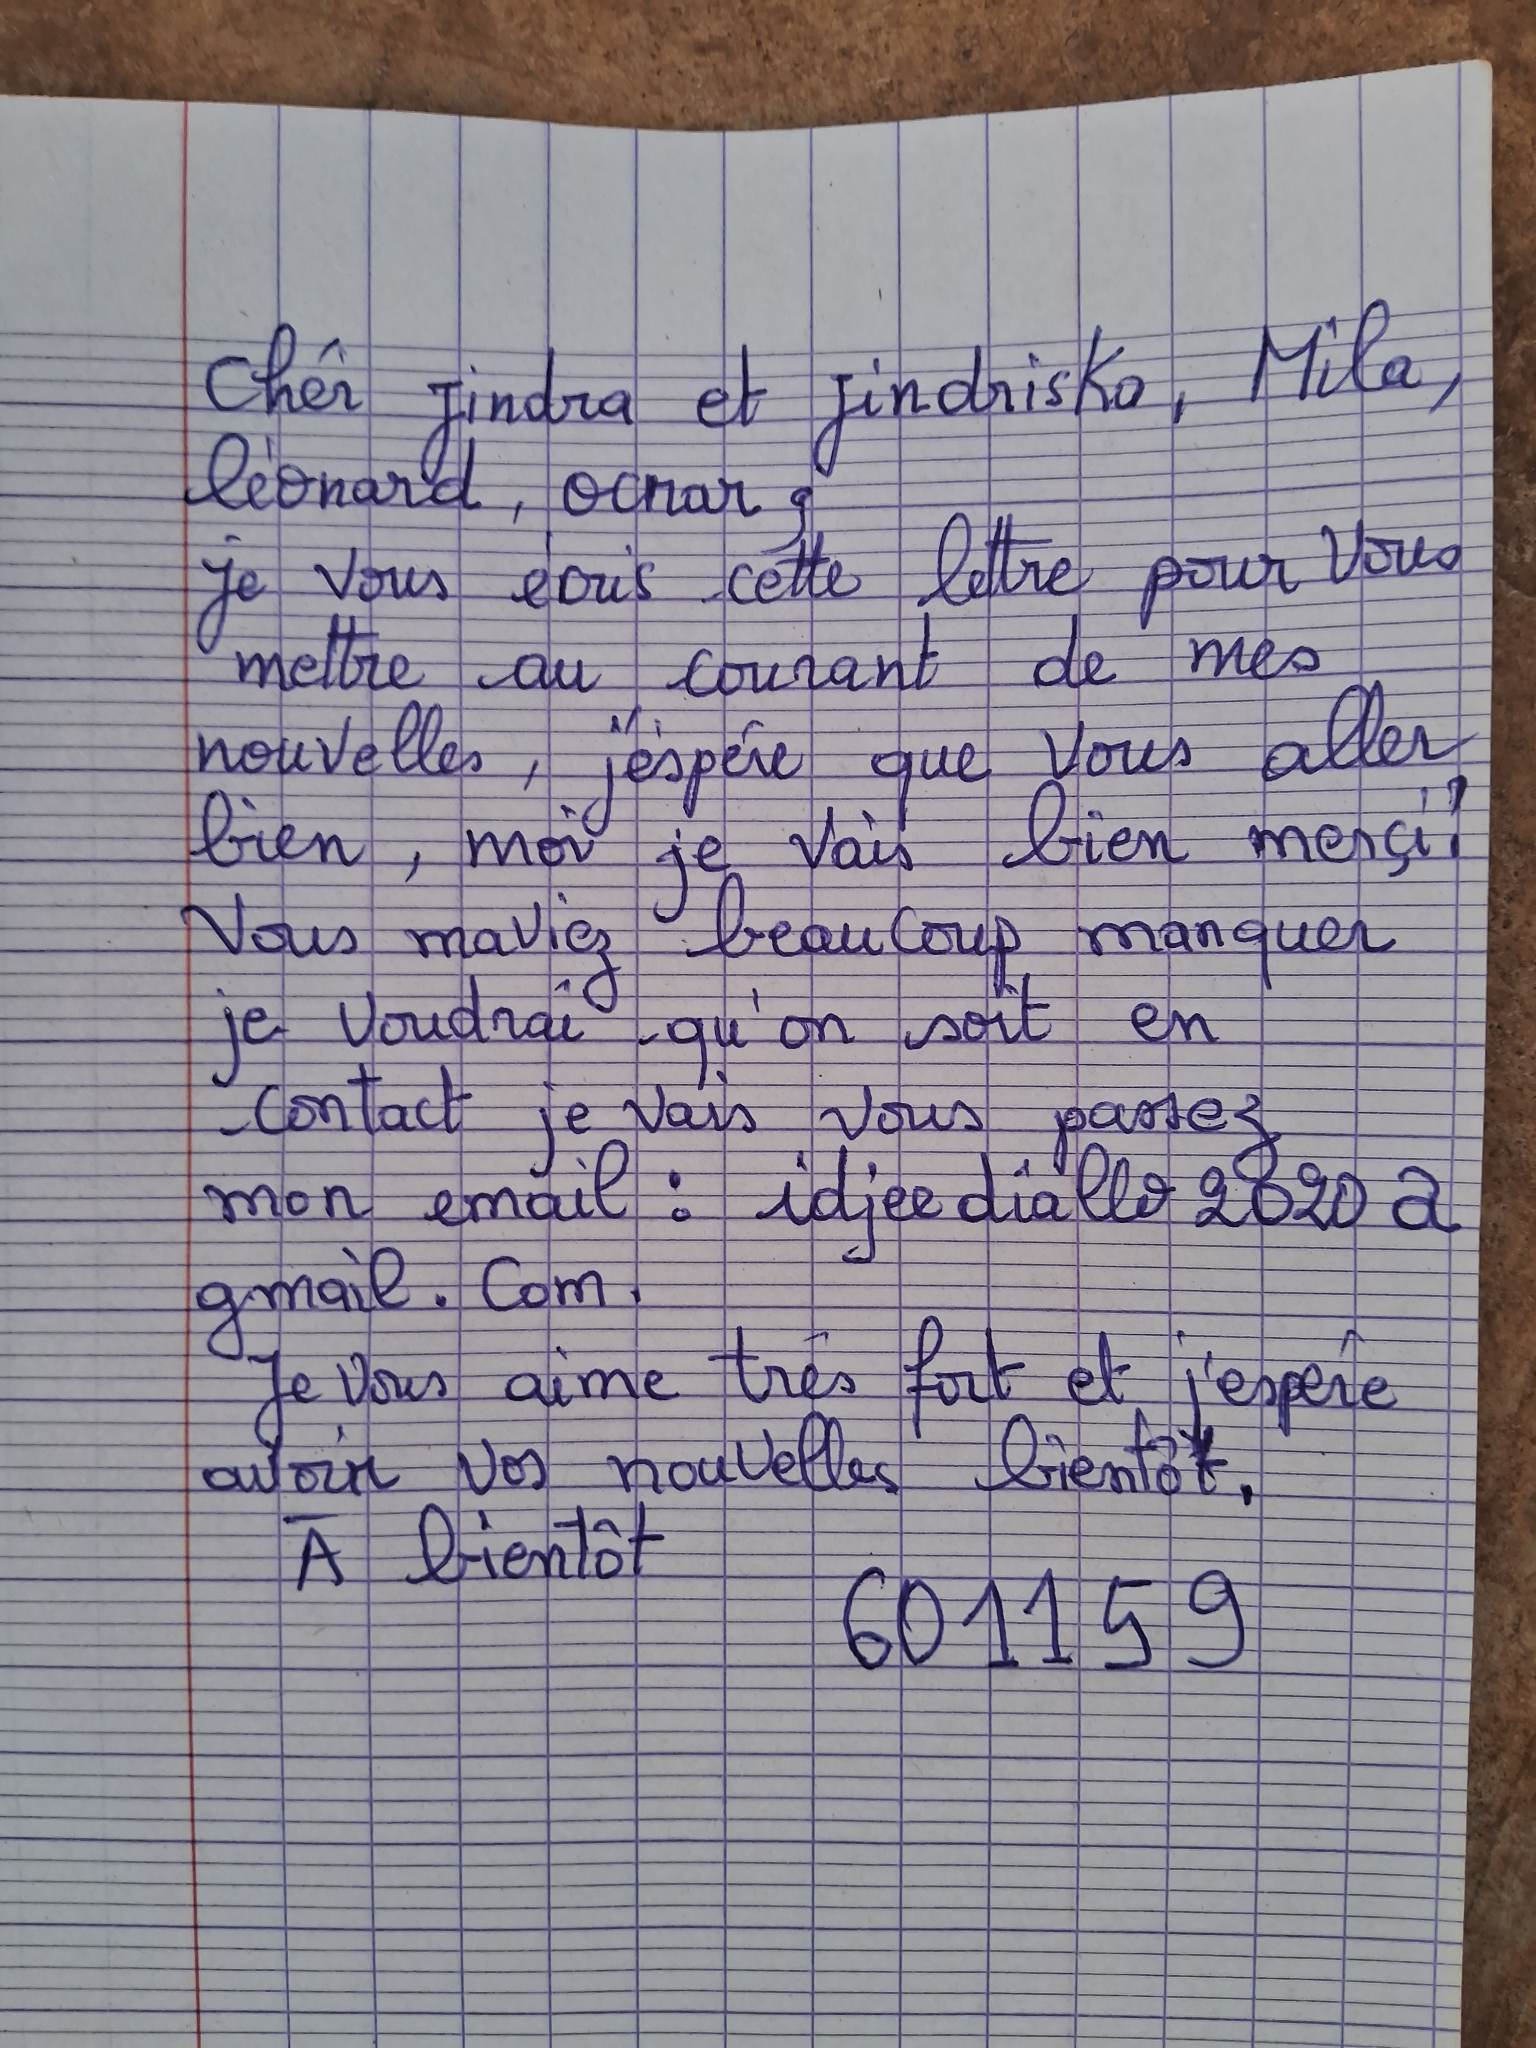 Chêr jindra et jindrisko, Mila,
léonard, ocnar,
je vous écris cette lettre pour vous
mettre au courant de mes
nouvelles, j'éspére que vous aller
bien, moi je vais bien merçi!
Vous maviez beaucoup manquer
je voudrai qu'on soit en
contact je vais vous passez
mon email : idjeediallo2020@
gmail.com.
Je vous aime très fort et j'espère
avoir vos nouvelles bientôt.
À bientôt
601159